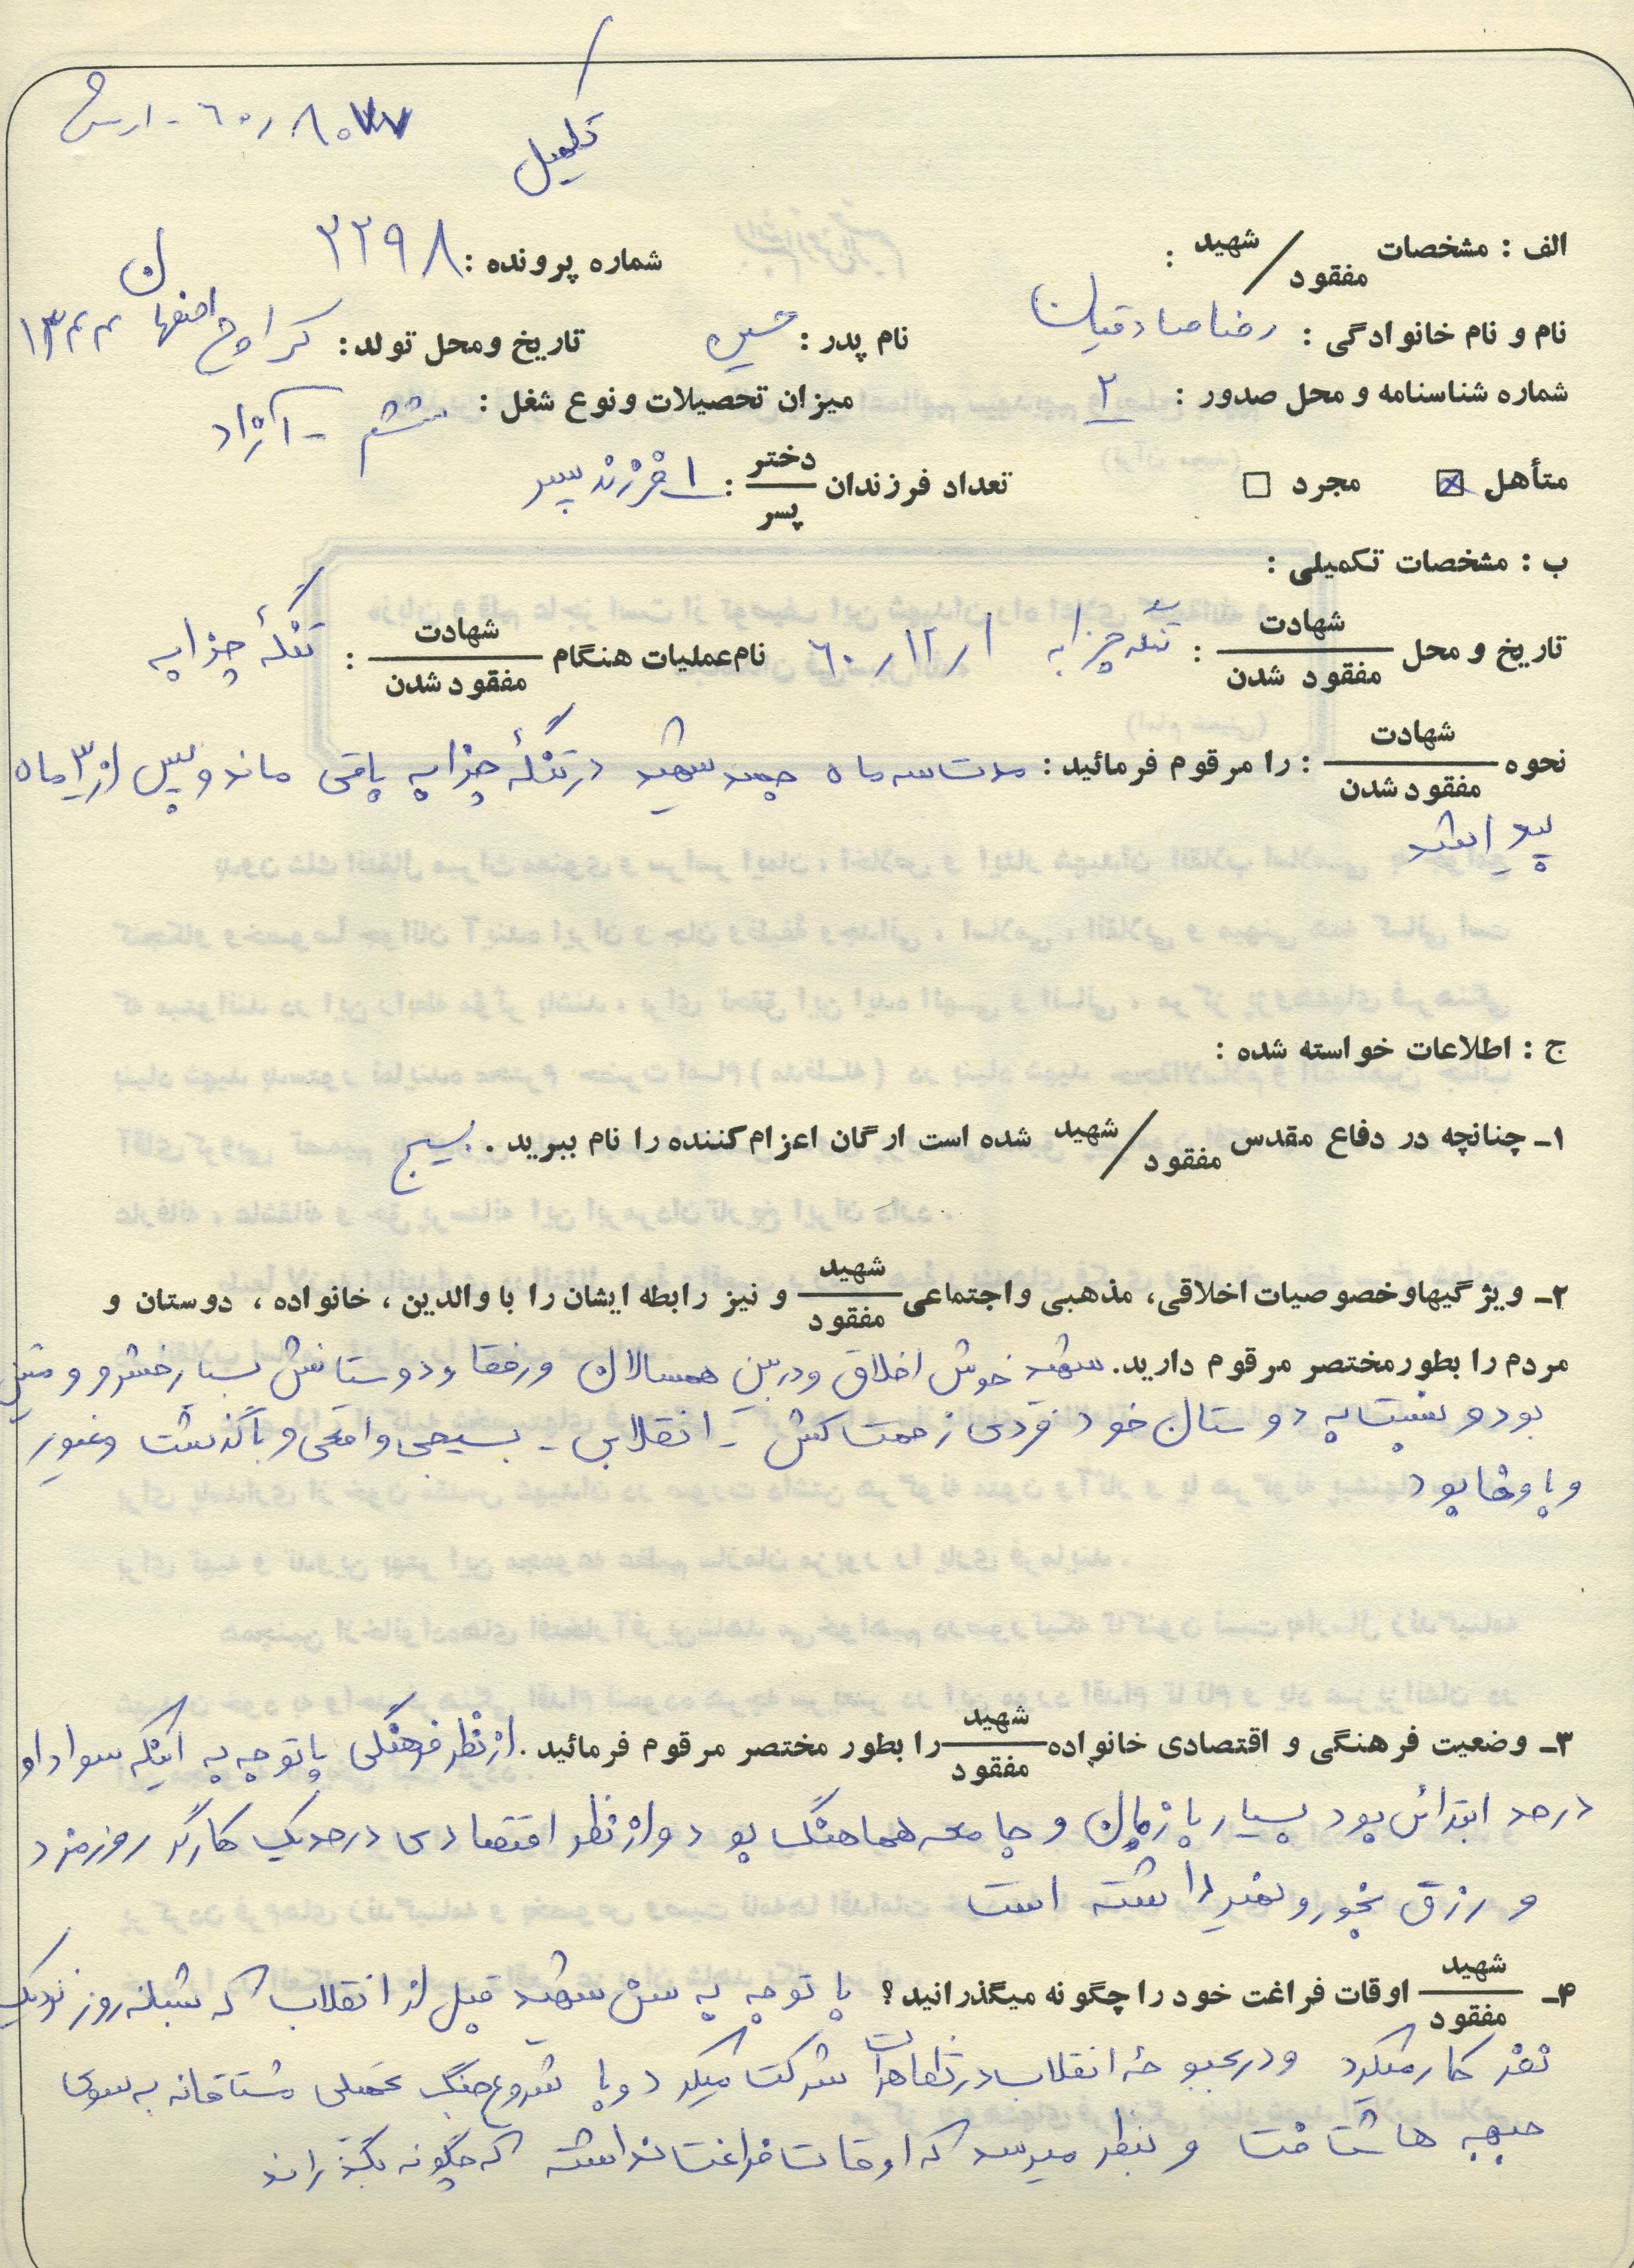 تکمیل
الف : مشخصات شهید / مفقود : شماره پرونده : ۳۲۹۸
نام و نام خانوادگی : رضا صادقیان نام پدر : حسین تاریخ ومحل تولد : اصفهان ۱۳۴۴
شماره شناسنامه و محل صدور : ۲ میزان تحصیلات ونوع شغل : ششم - آزاد
متأهل ☒ مجرد ☐ تعداد فرزندان دختر / پسر : ۱ فرزند پسر
ب : مشخصات تکمیلی :
تاریخ و محل شهادت / مفقود شدن : تنگه چزابه ۶۰/۱۲/۱ نام‌عملیات هنگام شهادت / مفقود شدن : تنگهٔ چزابه
نحوه شهادت / مفقود شدن : را مرقوم فرمائید : مدت سه ماه جسد شهید در تنگهٔ چزابه باقی ماند و پس از ۳ ماه
پیدا شد
ج : اطلاعات خواسته شده :
۱ـ چنانچه در دفاع مقدس شهید / مفقود شده است ارگان اعزام‌کننده را نام ببرید . بسیج
۲ـ ویژگیهاوخصوصیات اخلاقی، مذهبی واجتماعی شهید / مفقود و نیز رابطه ایشان را با والدین ، خانواده ، دوستان و
مردم را بطورمختصر مرقوم دارید. شهید خوش اخلاق ودربین همسالان ورفقا ودوستانش بسیار خشرو و متین
بود و نسبت به دوستان خود فردی زحمت کش - انقلابی - بسیجی واقعی و باگذشت وغیور
و باوفا بود
۳ـ وضعیت فرهنگی و اقتصادی خانواده شهید / مفقود را بطور مختصر مرقوم فرمائید . از نظر فرهنگی با توجه به اینکه سواد او
درحد ابتدائی بود بسیار با زمان و جامعه هماهنگ بود و از نظر اقتصادی درحد یک کارگر روزمزد
و رزق بخور و نمیر داشته است
۴ـ شهید / مفقود اوقات فراغت خود را چگونه میگذرانید ؟ با توجه به سن شهید قبل از انقلاب که شبانه روز نزدیک
نفر کار میکرد و در بحبوحهٔ انقلاب در تظاهرات شرکت میکرد و با شروع جنگ تحمیلی مشتاقانه به سوی
جبهه ها شتافت و بنظر میرسد که اوقات فراغت نداشته که چگونه بگذراند